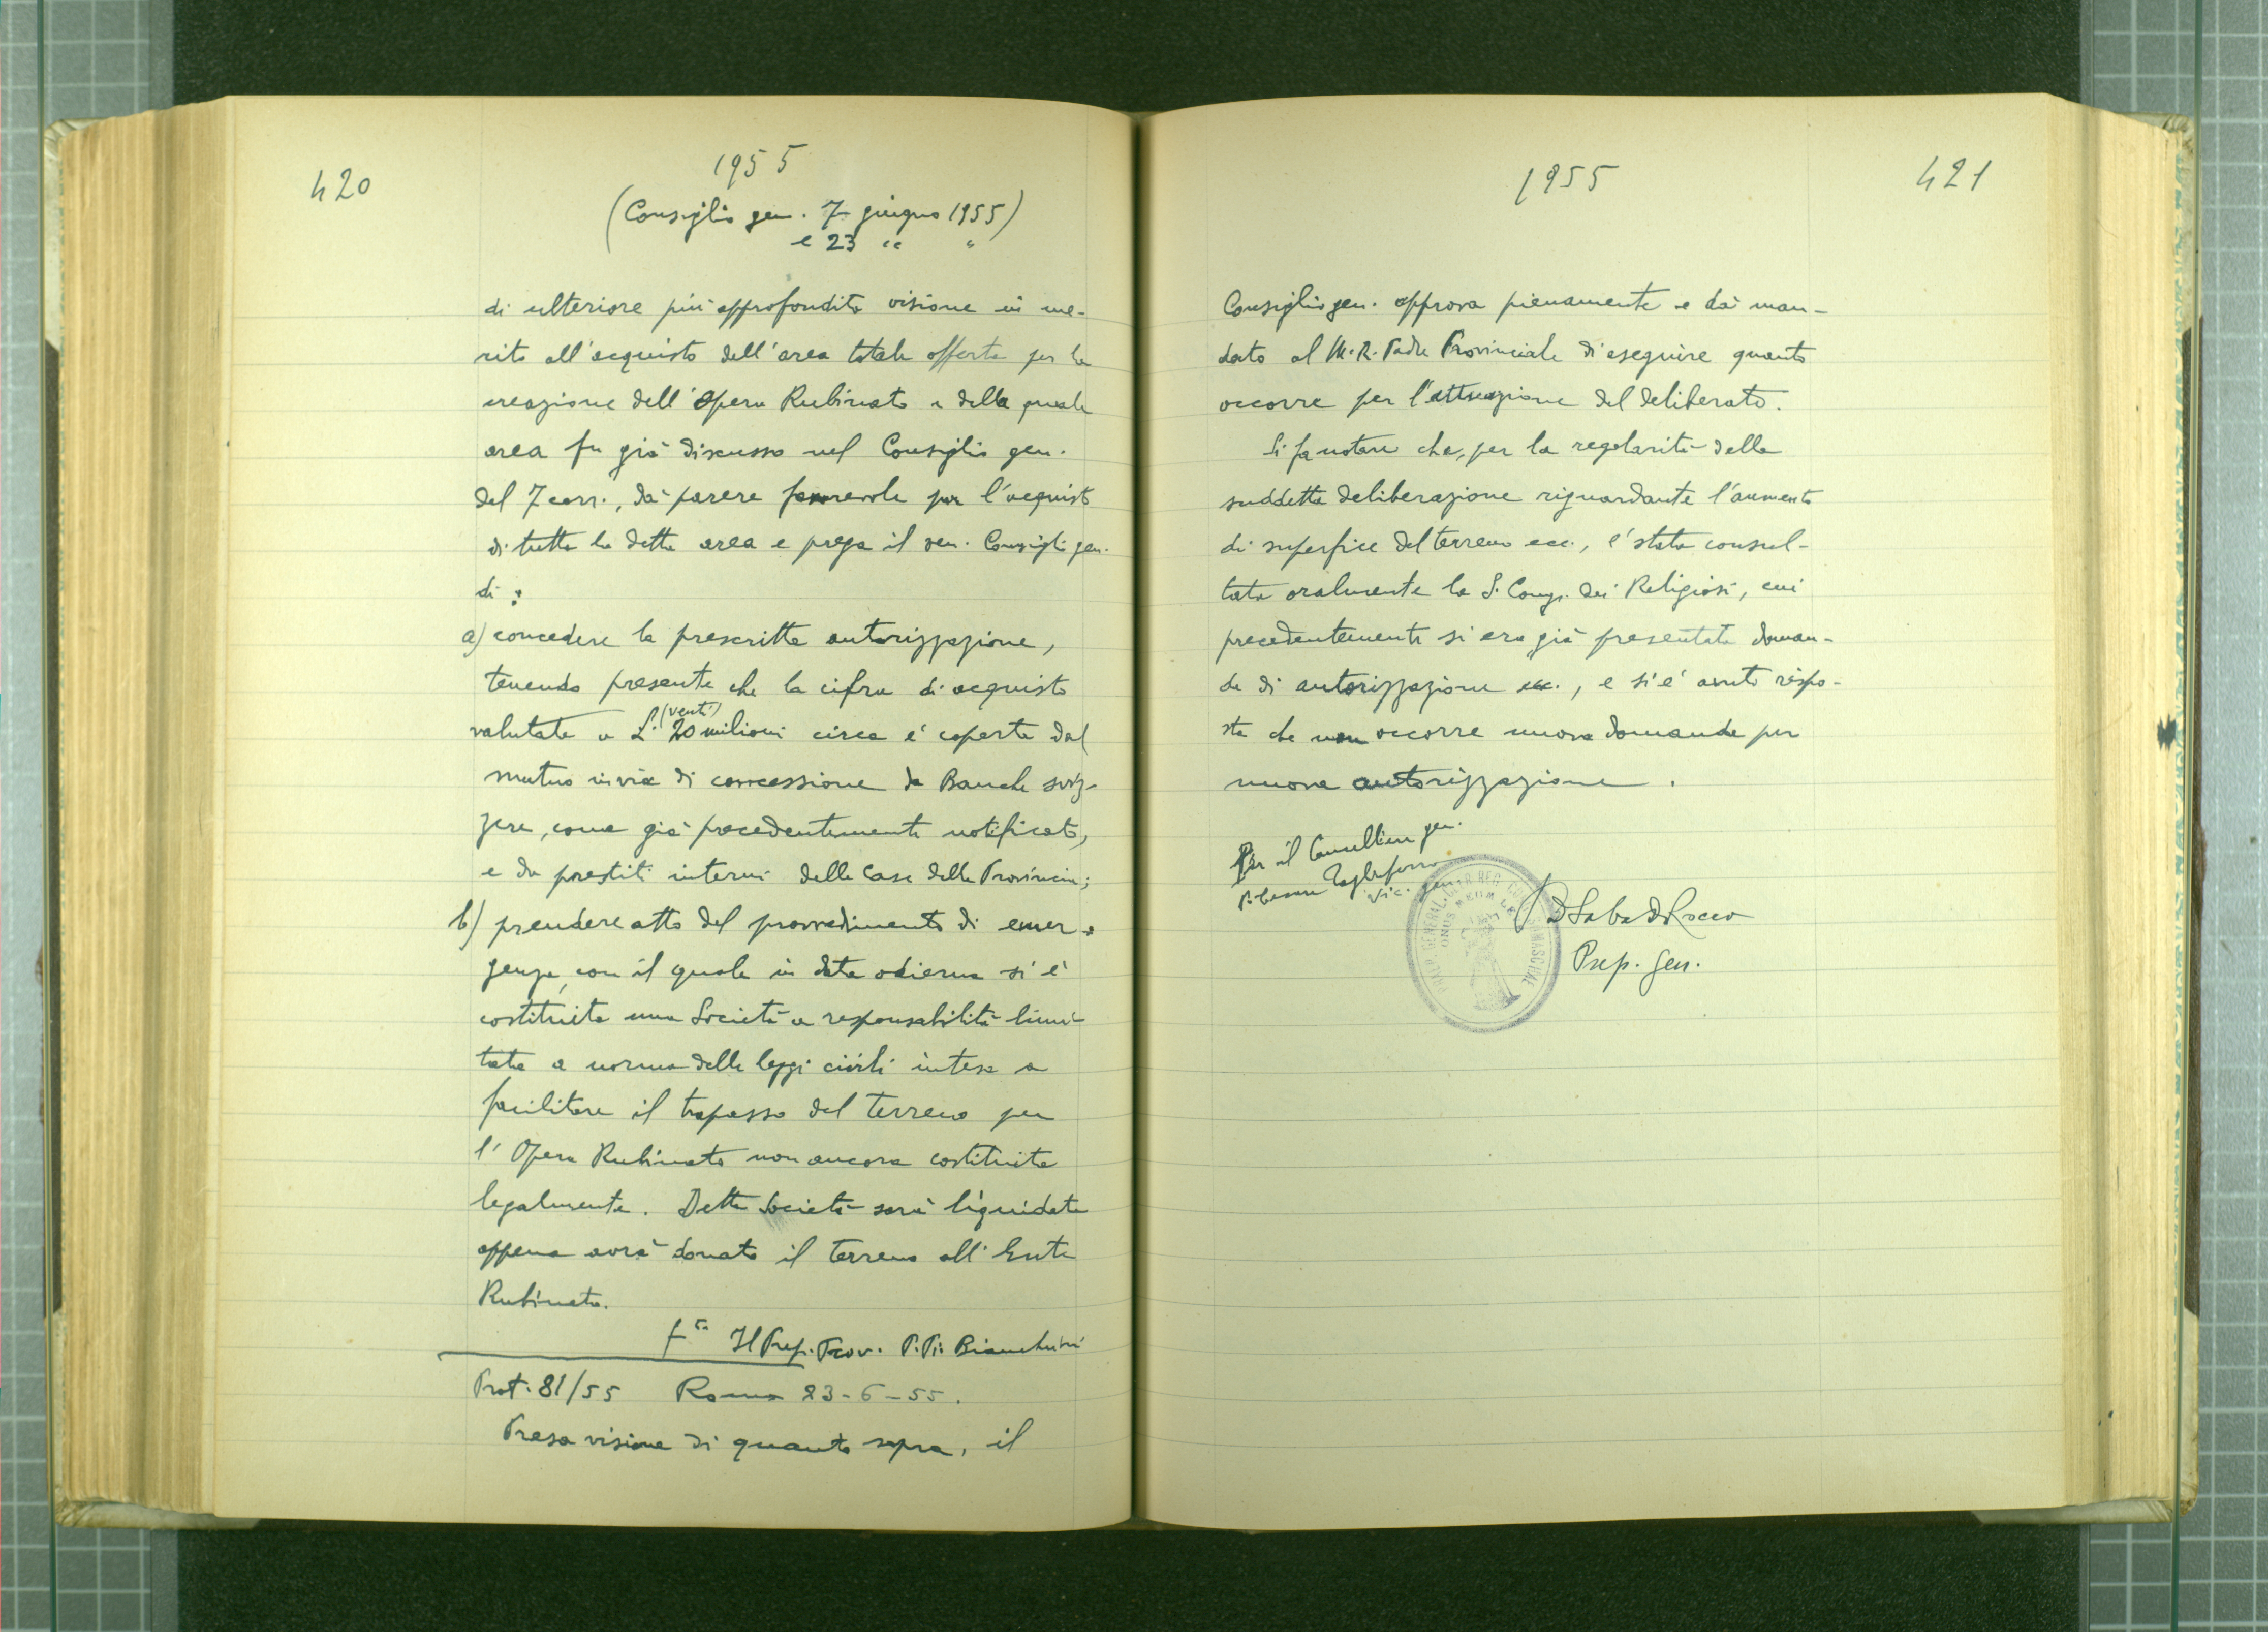 420
1955
(Consiglio gen. 7 giugno 1955)
e 23 " "
di ulteriore più approfondita visione in me-
rito all'acquisto dell'area totale offerta per la
creazione dell'Opera Rubinato e della quale
area fu già discusso nel Consiglio gen.
del 7 corr., dà parere favorevole per l'acquisto
di tutta la detta area e prega il ven. Consiglio gen.
di :
a) concedere la prescritta autorizzazione,
tenendo presente che la cifra di acquisto
valutata a L. 20 (venti) milioni circa è coperta dal
mutuo in via di concessione da Banche sviz-
zere, come già precedentemente notificato,
e da prestiti interni delle Case della Provincia;
b) prendere atto del provvedimento di emer-
genza, con il quale in data odierna si è
costituita una Società a responsabilità limi-
tata a norma delle leggi civili intesa a
facilitare il trapasso del terreno per
l'Opera Rubinato non ancora costituita
legalmente. Detta Società sarà liquidata
appena avrà donato il terreno all'Ente
Rubinato.
fto Il Prep. Prov. P. Pio Bianchini
Prot. 81/55 Roma 23-6-55.
Presa visione di quanto sopra, il
1955
421
Consiglio gen. approva pienamente e dà man-
dato al M. R. Padre Provinciale di eseguire quanto
occorre per l'attuazione del deliberato.
Si fa notare che, per la regolarità della
suddetta deliberazione riguardante l'aumento
di superfice del terreno ecc., è stata consul-
tata oralmente la S. Congr. dei Religiosi, cui
precedentemente si era già presentata doman-
da di autorizzazione ecc., e si è avuto rispo-
sta che non occorre nuova domanda per
nuova autorizzazione.
Per il Cancelliere gen.
P. Cesare Tagliaferro
Vic. gen.
P. D Saba De Rocco
Prep. gen.